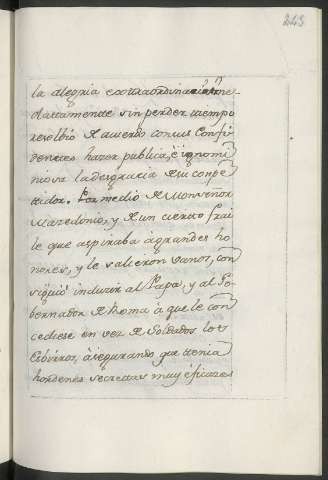 243
la alegria extraordinaria. Inme
diatamente sin perder tiempo
resolbió de acuerdo con sus Confi
dentes hazer publica, è ignomi
niosa la desgracia de su conpe
tidor. Por medio de Monseñor
Mazedonio, y de un cierto frai
le que aspiraba à grandes ho
nores, y le salieron vanos, con
siguió induzir al Papa, y al Go
bernador de Roma à que le con
cediese en vez de Soldados los
Esbirros, asegurando que tenia
hordenes secretas muy eficazes